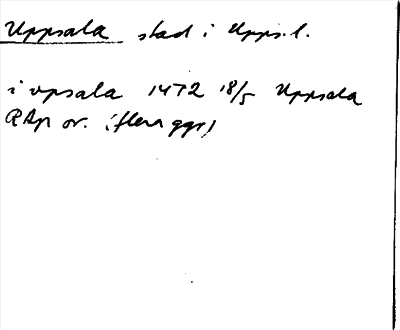 Uppsala stad i Upps.l.
i vpsala 1472 18/5 Uppsala
RAp or. (flera ggr)